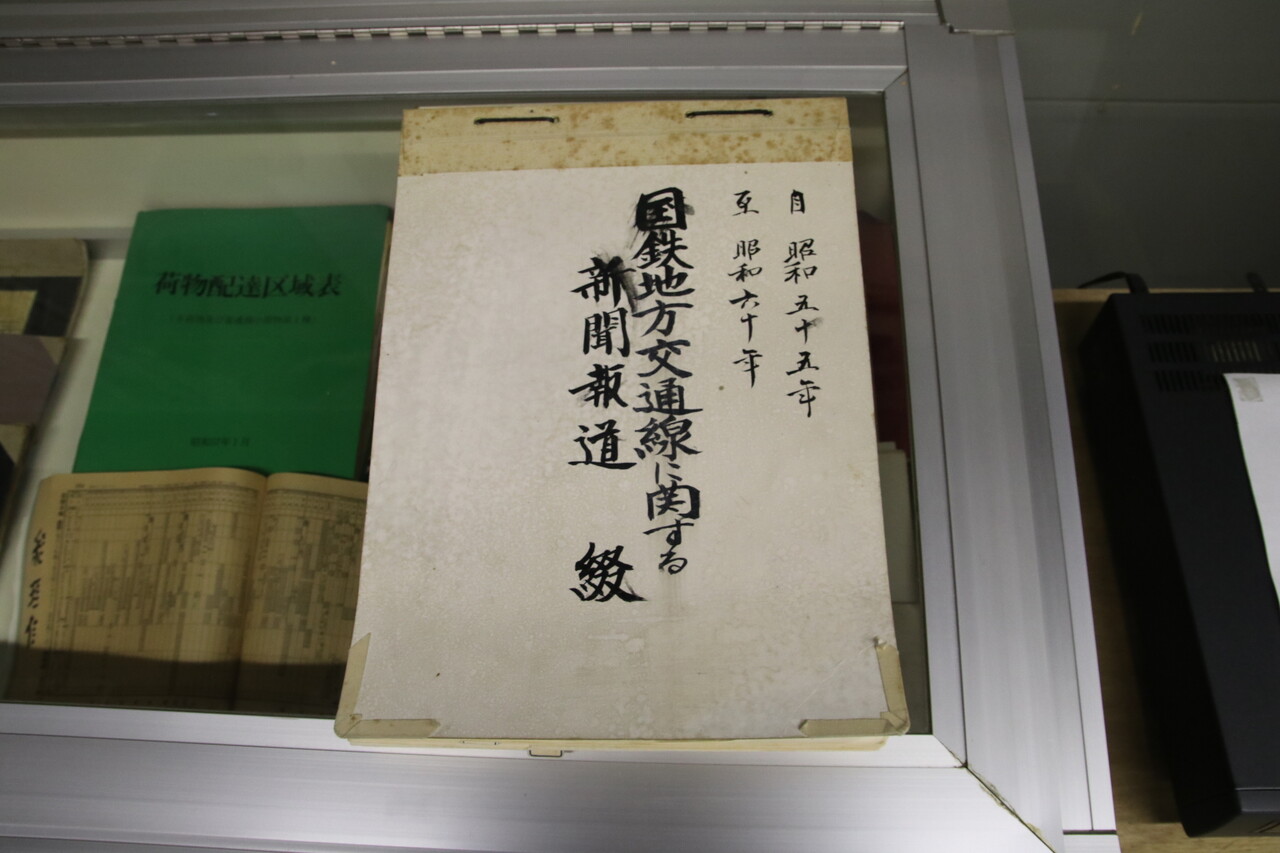 自 昭和五十五年
至 昭和六十年
国鉄地方交通線に関する
新聞報道 綴
荷物配達区域表